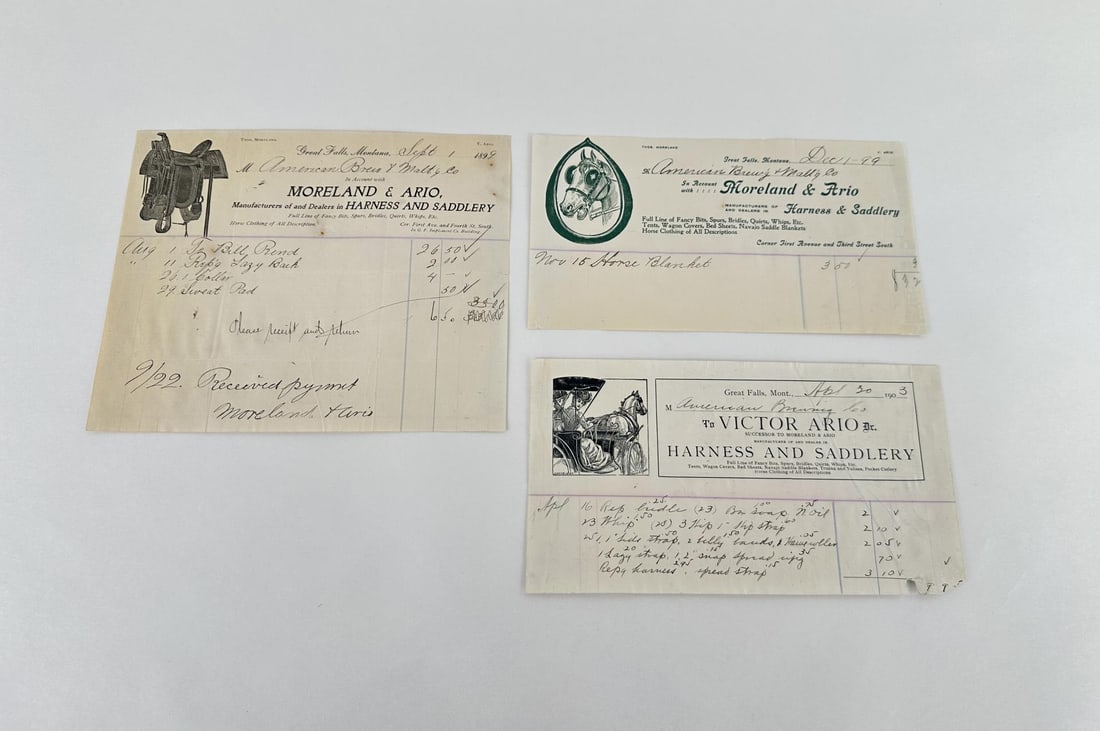 Thos. Moreland. V. Ario.
Great Falls, Montana, Sept 1 1899
M American Brew & Malt'g Co
In Account with
MORELAND & ARIO,
Manufacturers of and Dealers in HARNESS AND SADDLERY
Full Line of Fancy Bits, Spurs, Bridles, Quirts, Whips, Etc.
Horse Clothing of All Description. Cor First Ave. and Fourth St. South.
In G. F. Implement Co. Building
Aug 1 To Bill Rend 26 50 ✓
" 11 Rep'g Lazy Back 2 00 ✓
26 1 Collar 4 — ✓
29 Sweat Pad 50 ✓
6 50
Please receipt and return
9/22. Received pymnt
Moreland & Ario
THOS. MORELAND V. ARIO
Great Falls, Montana, Dec 1-99
M American Brew'g & Malt'g Co
In Account
with Moreland & Ario
MANUFACTURERS OF
AND DEALERS IN Harness & Saddlery
Full Line of Fancy Bits, Spurs, Bridles, Quirts, Whips, Etc.
Tents, Wagon Covers, Bed Sheets, Navajo Saddle Blankets
Horse Clothing of All Descriptions
Corner First Avenue and Third Street South
Nov 15 Horse Blanket 3 50
Great Falls, Mont. Apl 20 1903
M American Brewing Co
To VICTOR ARIO Dr.
SUCCESSOR TO MORELAND & ARIO
MANUFACTURER OF AND DEALER IN
HARNESS AND SADDLERY
Full Line of Fancy Bits, Spurs, Bridles, Quirts, Whips, Etc.
Tents, Wagon Covers, Bed Sheets, Navajo Saddle Blankets, Trunks and Valises, Pocket Cutlery
Horse Clothing of All Descriptions
Apl 16 Rep bridle 25 (23) Bx Soap 100 N oil 75 2 ✓
23 Whip 150 (25) 3 Hip 1" Hip strap 60 2 10 ✓
25 1, 1" side strap, 50 2 belly bands, 150 2 05 ✓
1 Lazy strap, 20 1, 2" snap 15 spread rings 35 70 ✓
Rep'g harness, 295 spread strap 15 3 10 ✓